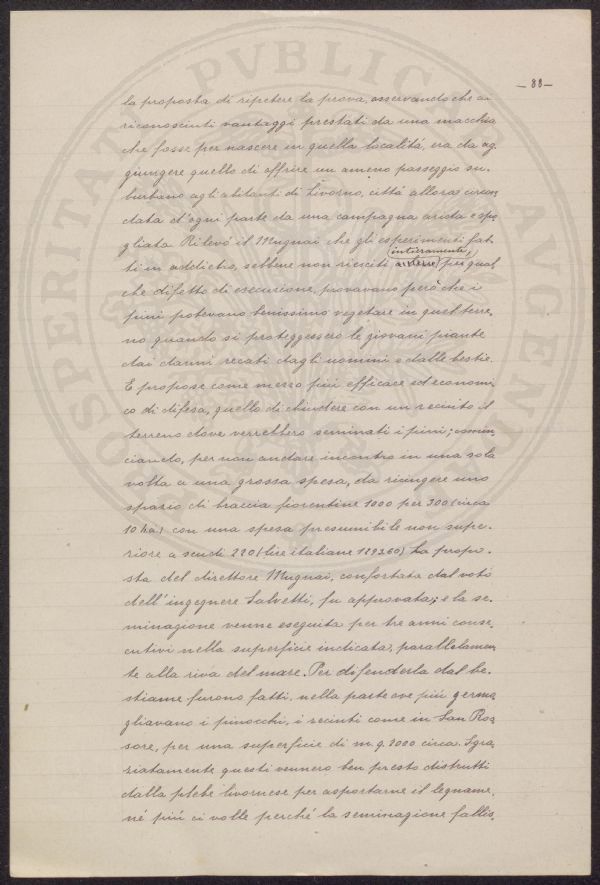 — 88 —
la proposta di ripetere la prova, osservando che ai
riconosciuti vantaggi prestati da una macchia
che fosse per nascere in quella località, era da ag,
giungere quello di offrire un ameno passeggio su,
burbano agli abitanti di Livorno, città allora circon,
data d'ogni parte da una campagna arida e spo,
gliata. Rilevò il Mugnai che gli esperimenti fat,
intieramente,
ti in addietro, sebbene non riesciti per qual,
che difetto di esecuzione, provavano però che i
pini potevano benissimo vegetare in quel terre,
no quando si proteggessero le giovani piante
dai danni recati dagli uomini e dalle bestie.
E propose come mezzo più efficace ed economi,
co di difesa, quello di chiudere con un recinto il
terreno dove verrebbero seminati i pini; comin,
ciando, per non andare incontro in una sola
volta a una grossa spesa, da ricingere uno
spazio di braccia fiorentine 1000 per 300 (circa
10 ha) con una spesa presumibile non supe,
riore a scudi 220 (lire italiane 1293.60) La propo,
sta del direttore Mugnai, confortata dal voto
dell'ingegnere Salvetti, fu approvata; e la se,
minagione venne eseguita per tre anni conse,
cutivi nella superficie indicata, parallelamen,
te alla riva del mare. Per difenderla dal be,
stiame furono fatti, nella parte ove più germo,
gliavano i pinocchi, i recinti come in San Ros,
sore, per una superficie di m.q. 2000 circa. Sgra,
ziatamente questi vennero ben presto distrutti
dalla plebe livornese per asportarne il legname,
né più ci volle perché la seminagione fallis,
PROSPERITATI PVBLICAE AVGENDAE